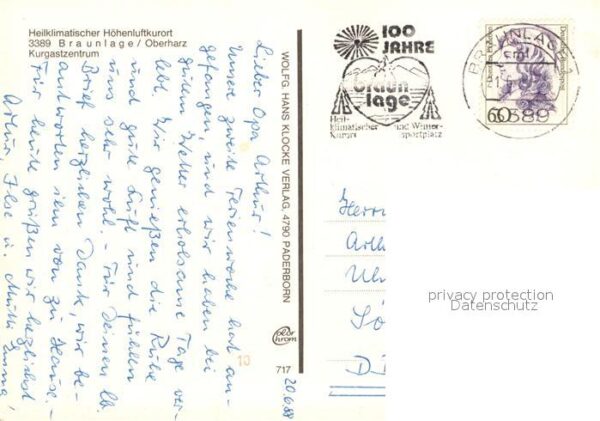 Heilklimatischer Höhenluftkurort
3389 Braunlage/Oberharz
Kurgastzentrum
Lieber Opa Arthur!
Unsere zweite Ferienwoche hat an-
gefangen, und wir haben bei
gutem Wetter erholsame Tage ver-
lebt. Wir genießen die Ruhe
und gute Luft und fühlen
uns sehr wohl. – Für Deinen lb.
Brief herzlichen Dank, wir be-
antworten ihn von zu Hause. –
Für heute grüßen wir herzlichst
Arthur, Ilse u. Mutti
20.6.89
WOLFG. HANS KLOCKE VERLAG, 4790 PADERBORN
color
chrom
717
10
100
JAHRE
Braun
lage
Heil-
klimatischer und Winter-
Kurort sportplatz
BRAUNLAGE
Deutsche Bundespost
60
3389
Herrn
privacy protection
Datenschutz